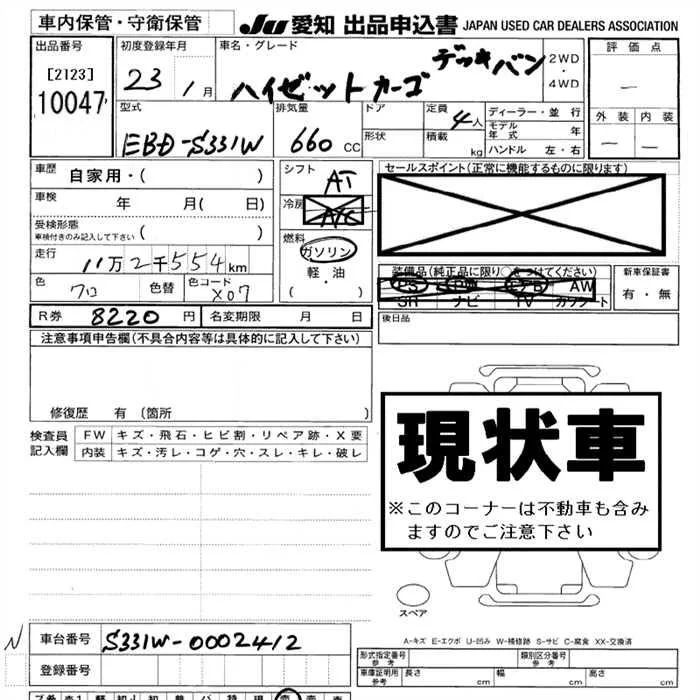 車内保管・守衛保管 JU 愛知 出品申込書 JAPAN USED CAR DEALERS ASSOCIATION
出品番号 初度登録年月 車名・グレード 評価点
[2123] 23 1月 ハイゼットカーゴ デッキバン 2WD・4WD ―
10047
型式 排気量 ドア 定員 ディーラー・並行 外装 内装
EBD-S331W 660 CC 形状 4人 積載 kg モデル年式 年 ― ―
ハンドル 左・右
車歴 自家用・( ) シフト AT セールスポイント(正常に機能するものに限ります)
車検 年 月( 日) 冷房 A/C
受検形態 車検付きのみ記入して下さい ( )
燃料 ガソリン
走行 11万2千554km 軽・油 装備品(純正品に限り○をつけてください) 新車保証書
色 クロ 色替 色コード X07 (・) PS PW エアB AW 有・無
SR ナビ TV カワシート
R券 8220円 名変期限 月 日 後日品
注意事項申告欄(不具合内容等は具体的に記入して下さい)
現状車
修復歴 有(箇所 )
検査員 FW キズ・飛石・ヒビ割・リペア跡・X要
記入欄 内装 キズ・汚レ・コゲ・穴・スレ・キレ・破レ
※このコーナーは不動車も含み
ますのでご注意下さい
スペア
A-キズ E-エクボ U-凹み W-補修跡 S-サビ C-腐食 XX-交換済
N 車台番号 S331W-0002412
形式指定番号 参考 類別区分番号 参考
登録番号 車庫証明用 参考 長さ cm 幅 cm 高さ cm